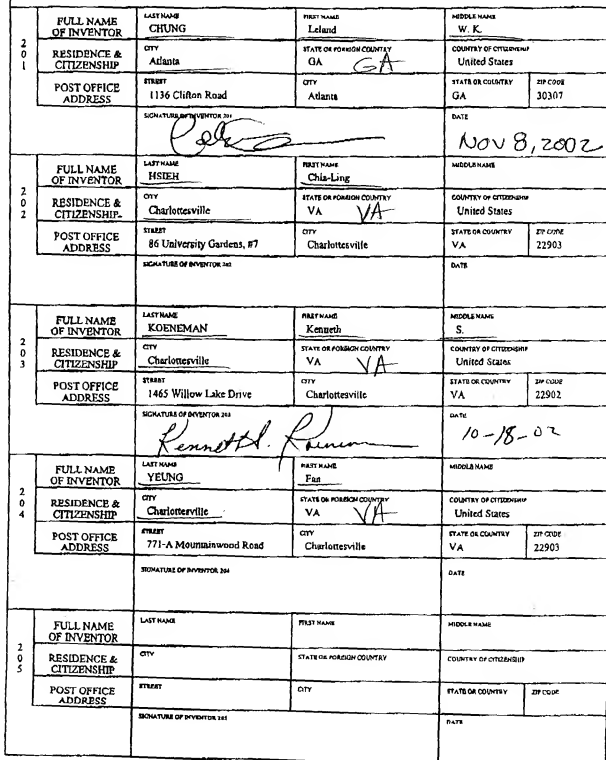 FULL NAME OF INVENTOR LAST NAME CHUNG FIRST NAME Leland MIDDLE NAME W. K.
201 RESIDENCE & CITIZENSHIP CITY Atlanta STATE OR FOREIGN COUNTRY GA GA COUNTRY OF CITIZENSHIP United States
POST OFFICE ADDRESS STREET 1136 Clifton Road CITY Atlanta STATE OR COUNTRY GA ZIP CODE 30307
SIGNATURE OF INVENTOR 201 DATE Nov 8, 2002
FULL NAME OF INVENTOR LAST NAME HSIEH FIRST NAME Chia-Ling MIDDLE NAME
202 RESIDENCE & CITIZENSHIP CITY Charlottesville STATE OR FOREIGN COUNTRY VA VA COUNTRY OF CITIZENSHIP United States
POST OFFICE ADDRESS STREET 86 University Gardens, #7 CITY Charlottesville STATE OR COUNTRY VA ZIP CODE 22903
SIGNATURE OF INVENTOR 202 DATE
FULL NAME OF INVENTOR LAST NAME KOENEMAN FIRST NAME Kenneth MIDDLE NAME S.
203 RESIDENCE & CITIZENSHIP CITY Charlottesville STATE OR FOREIGN COUNTRY VA VA COUNTRY OF CITIZENSHIP United States
POST OFFICE ADDRESS STREET 1465 Willow Lake Drive CITY Charlottesville STATE OR COUNTRY VA ZIP CODE 22902
SIGNATURE OF INVENTOR 203 Kenneth S. DATE 10-18-02
FULL NAME OF INVENTOR LAST NAME YEUNG FIRST NAME Fan MIDDLE NAME
204 RESIDENCE & CITIZENSHIP CITY Charlottesville STATE OR FOREIGN COUNTRY VA VA COUNTRY OF CITIZENSHIP United States
POST OFFICE ADDRESS STREET 771-A Mountainwood Road CITY Charlottesville STATE OR COUNTRY VA ZIP CODE 22903
SIGNATURE OF INVENTOR 204 DATE
FULL NAME OF INVENTOR LAST NAME FIRST NAME MIDDLE NAME
205 RESIDENCE & CITIZENSHIP CITY STATE OR FOREIGN COUNTRY COUNTRY OF CITIZENSHIP
POST OFFICE ADDRESS STREET CITY STATE OR COUNTRY ZIP CODE
SIGNATURE OF INVENTOR 205 DATE